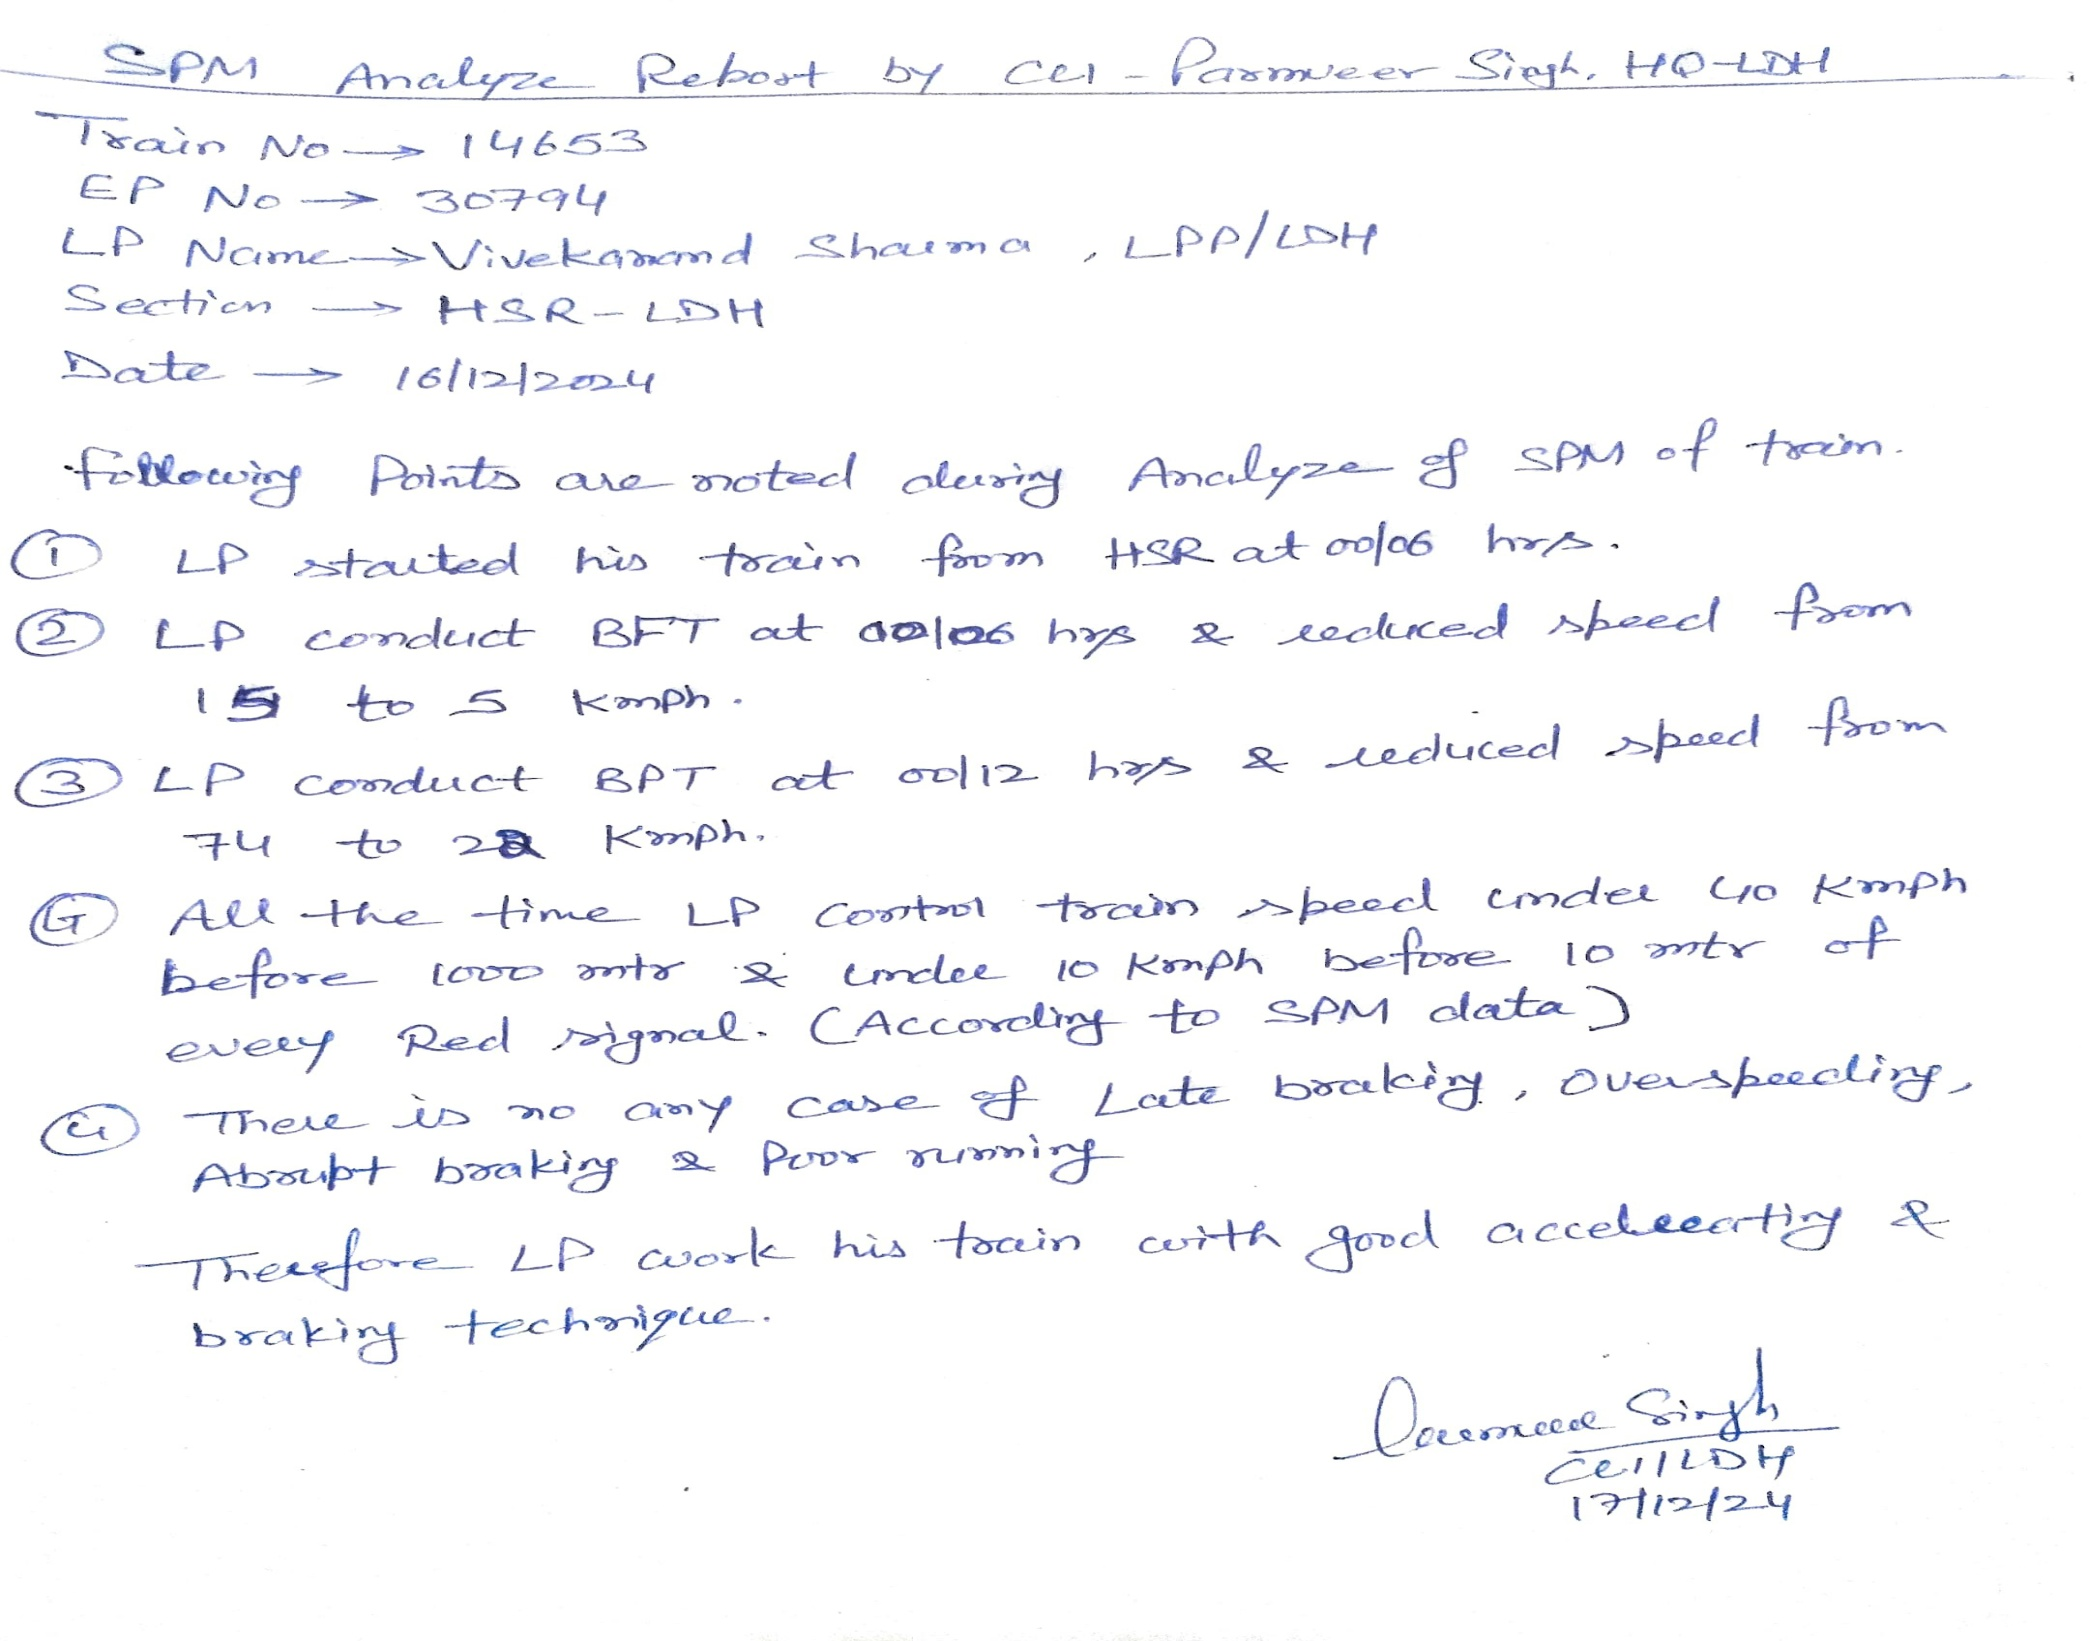 SPM Analyze Report by CLI - Parmveer Singh, HQ-LDH
Train No → 14653
EP No → 30794
LP Name → Vivekanand Sharma, LPP/LDH
Section → HSR - LDH
Date → 16/12/2024
following Points are noted during Analyze of SPM of train.
① LP started his train from HSR at 00/06 hrs.
② LP conduct BFT at 00/06 hrs & reduced speed from
15 to 5 Kmph.
③ LP conduct BPT at 00/12 hrs & reduced speed from
74 to 22 Kmph.
④ All the time LP control train speed under 40 Kmph
before 1000 mtr & under 10 Kmph before 10 mtr of
every Red signal. (According to SPM data)
④ There is no any case of Late braking, Overspeeding,
Abrupt braking & Poor running
Therefore LP work his train with good acceleerating &
braking technique.
Parmveer Singh
CLI/LDH
17/12/24